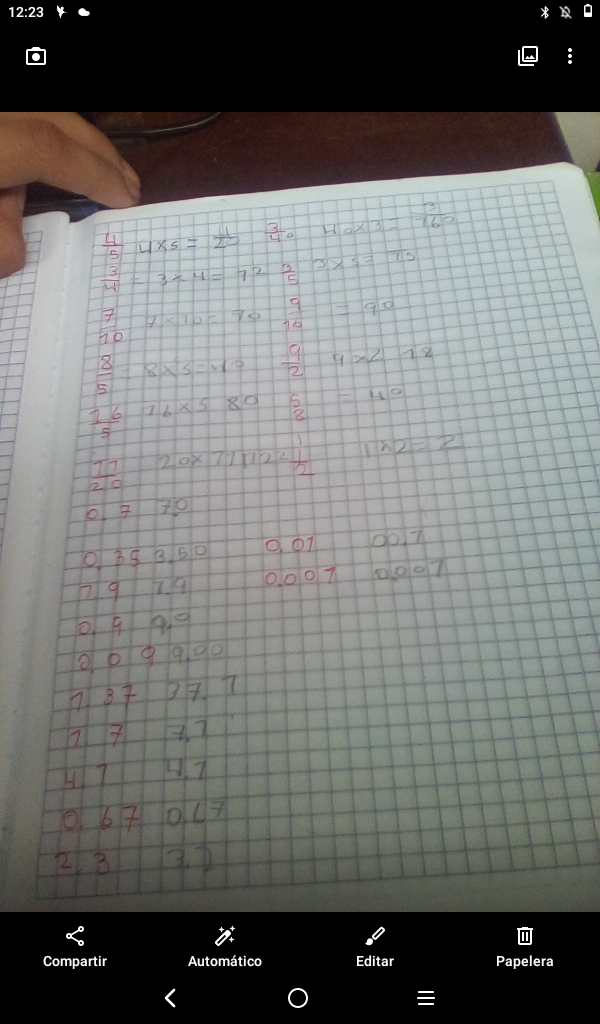 12:23
4/5 4x5 = 4/20 3/40 40x3 = 3/160
3/4 = 3x4 = 72 3/5 3x5 = 75
7/10 7x10 = 70 9/10 = 90
8/5 8x5 = 40 9/2 9x2 18
16/5 16x5 80 5/8 = 40
11/20 20x 1/2 1x2 = 2
0.7 7,0
0.35 3,50 0,01 00,1
7 9 7,9 0,007 0,007
0,9 9,0
0,0 9 9,00
1 37 37,1
1 7 7,1
4,1 4,1
0,67 0,67
2,3
Compartir
Automático
Editar
Papelera